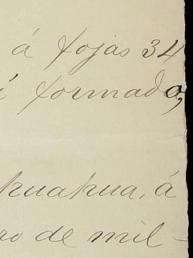 á fojas 34
í formado,
huahua, á
ro de mil-